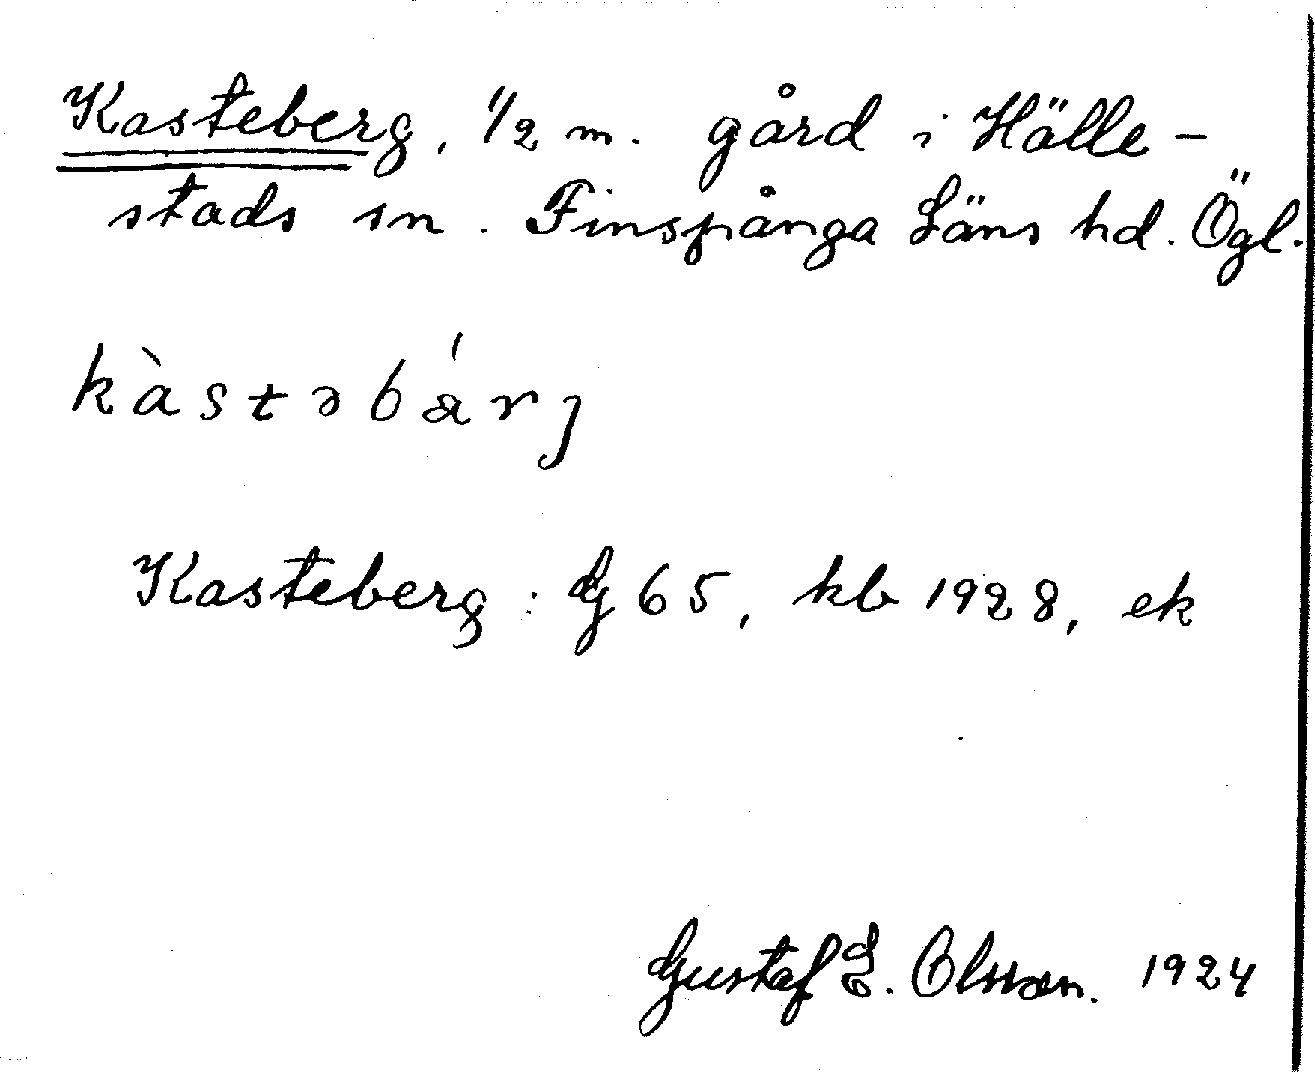 Kasteberg, 1/2 m. gård i Hälle-
stads sn. Finspånga Läns hd. Ögl.
kàstəbá̤rj
Kasteberg: G 65, kb 1928, ek
Gustaf E. Olsson. 1924